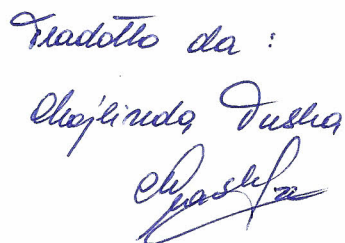 Tradotto da :
Majlinda Duska